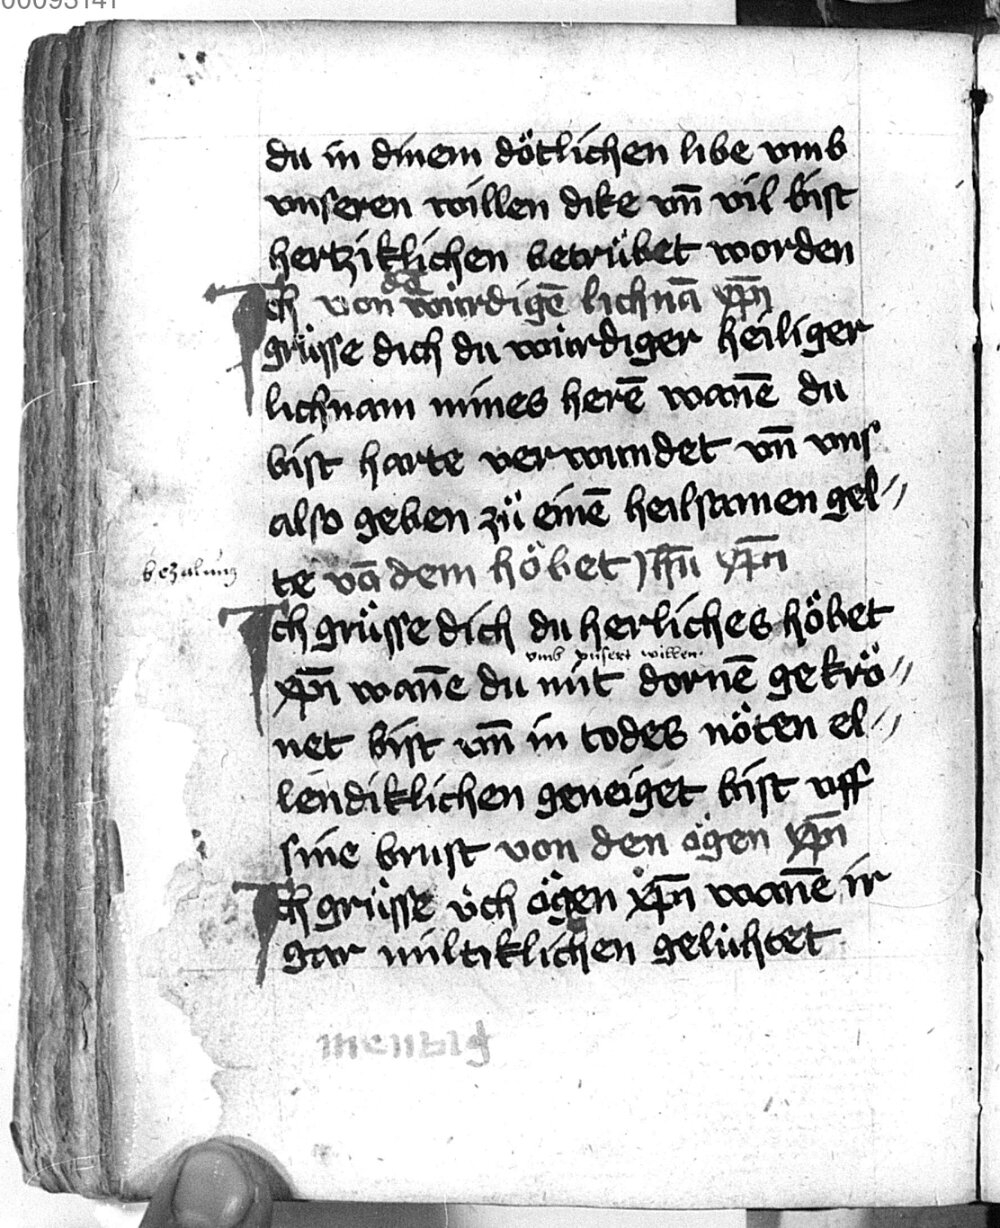 00093141
du in dinem dötlichen libe vmb
vnseren willen dike vn̄ vil bist
hertziklichen betrübet worden
Ich von dē wirdigē lichnā xp̄n
grüsse dich du wirdiger heiliger
lichnam mines herē wan̄e du
bist harte verwundet vn̄ vns
also geben zü einē heilsamen gel〃
bezalung
te vā dem höbet Jhū xp̄n
Ich grüsse dich du herliches höbet
vmb vnsert willen
xp̄n wan̄e du mit dornē gekrö〃
net bist vn̄ in todes nöten el〃
lendiklichen geneiget bist vff
sine brust von den ögen xp̄n
Ich grüsse üch ögen xp̄n wan̄e ir
gar miltiklichen gelühtet